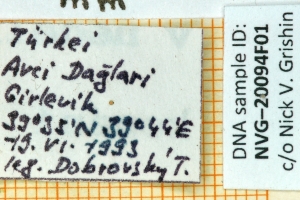 Türkei
Avci Dağlari
Girlevik
39°35'N 39°44'E
19. VI. 1993
leg. Dobrovsky T.
DNA sample ID:
NVG-20094F01
c/o Nick V. Grishin